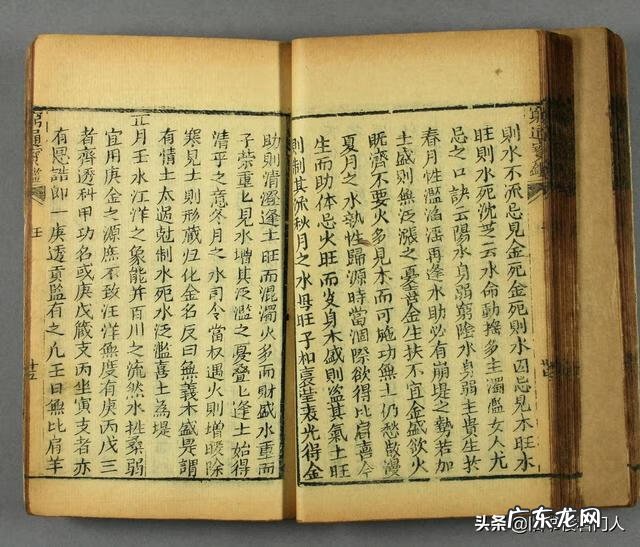 窮通寶鑑
則水不流忌見金死金死則水囚忌見木旺木旺水
旺則水死沈芝云水命動搖多主濁濫女人尤
忌之口訣云陽水身弱窮陰水身弱主貴生扶
春月性濫滔淫再逢水助必有崩堤之勢若加
土盛則無泛漲之憂喜金生扶不宜金盛欲火
既濟不要火多見木而可施功無土仍愁散漫
夏月之水執性歸源時當涸際欲得比肩喜金
生而助体忌火旺而
木盛則盜其氣土旺
則制其流秋月之水母旺子相裏瑩表光得金
助則清澄逢土旺而混濁火多而財盛水重而
子榮重匕見水增其泛濫之憂疊匕逢土始得
清平之意冬月之水司令當权遇火則增暖除
寒見土則形藏归化金多反曰無義木盛是謂
有情土太過尅制水死水泛濫喜土為堤
正月壬水汪洋之象能并百川之流然水性柔弱
宜用庚金之源庶不致汪洋無度有庚丙戊三
者齊透科甲功名或庚戊藏支丙坐寅支者亦
有恩誥即一庚透貢監有之凡壬日無比肩羊
窮通寶鑑
壬
头条
广东龙网